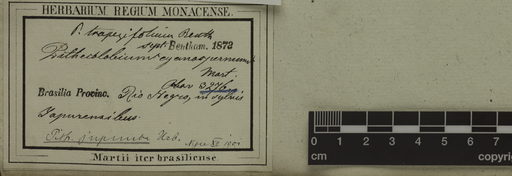 HERBARIUM REGIUM MONACENSE.
P. trapezifolium Benth
sept. Bentham. 1873
Pithecolobium cyanospermum
Mart.
Obs. 3276
Brasilia Provinc. Rio Negro, in sylvis
Japurensibus
Pith. Hrb.
Martii iter brasiliense
0 1 2 3 4 5 6 7
cm copyrig